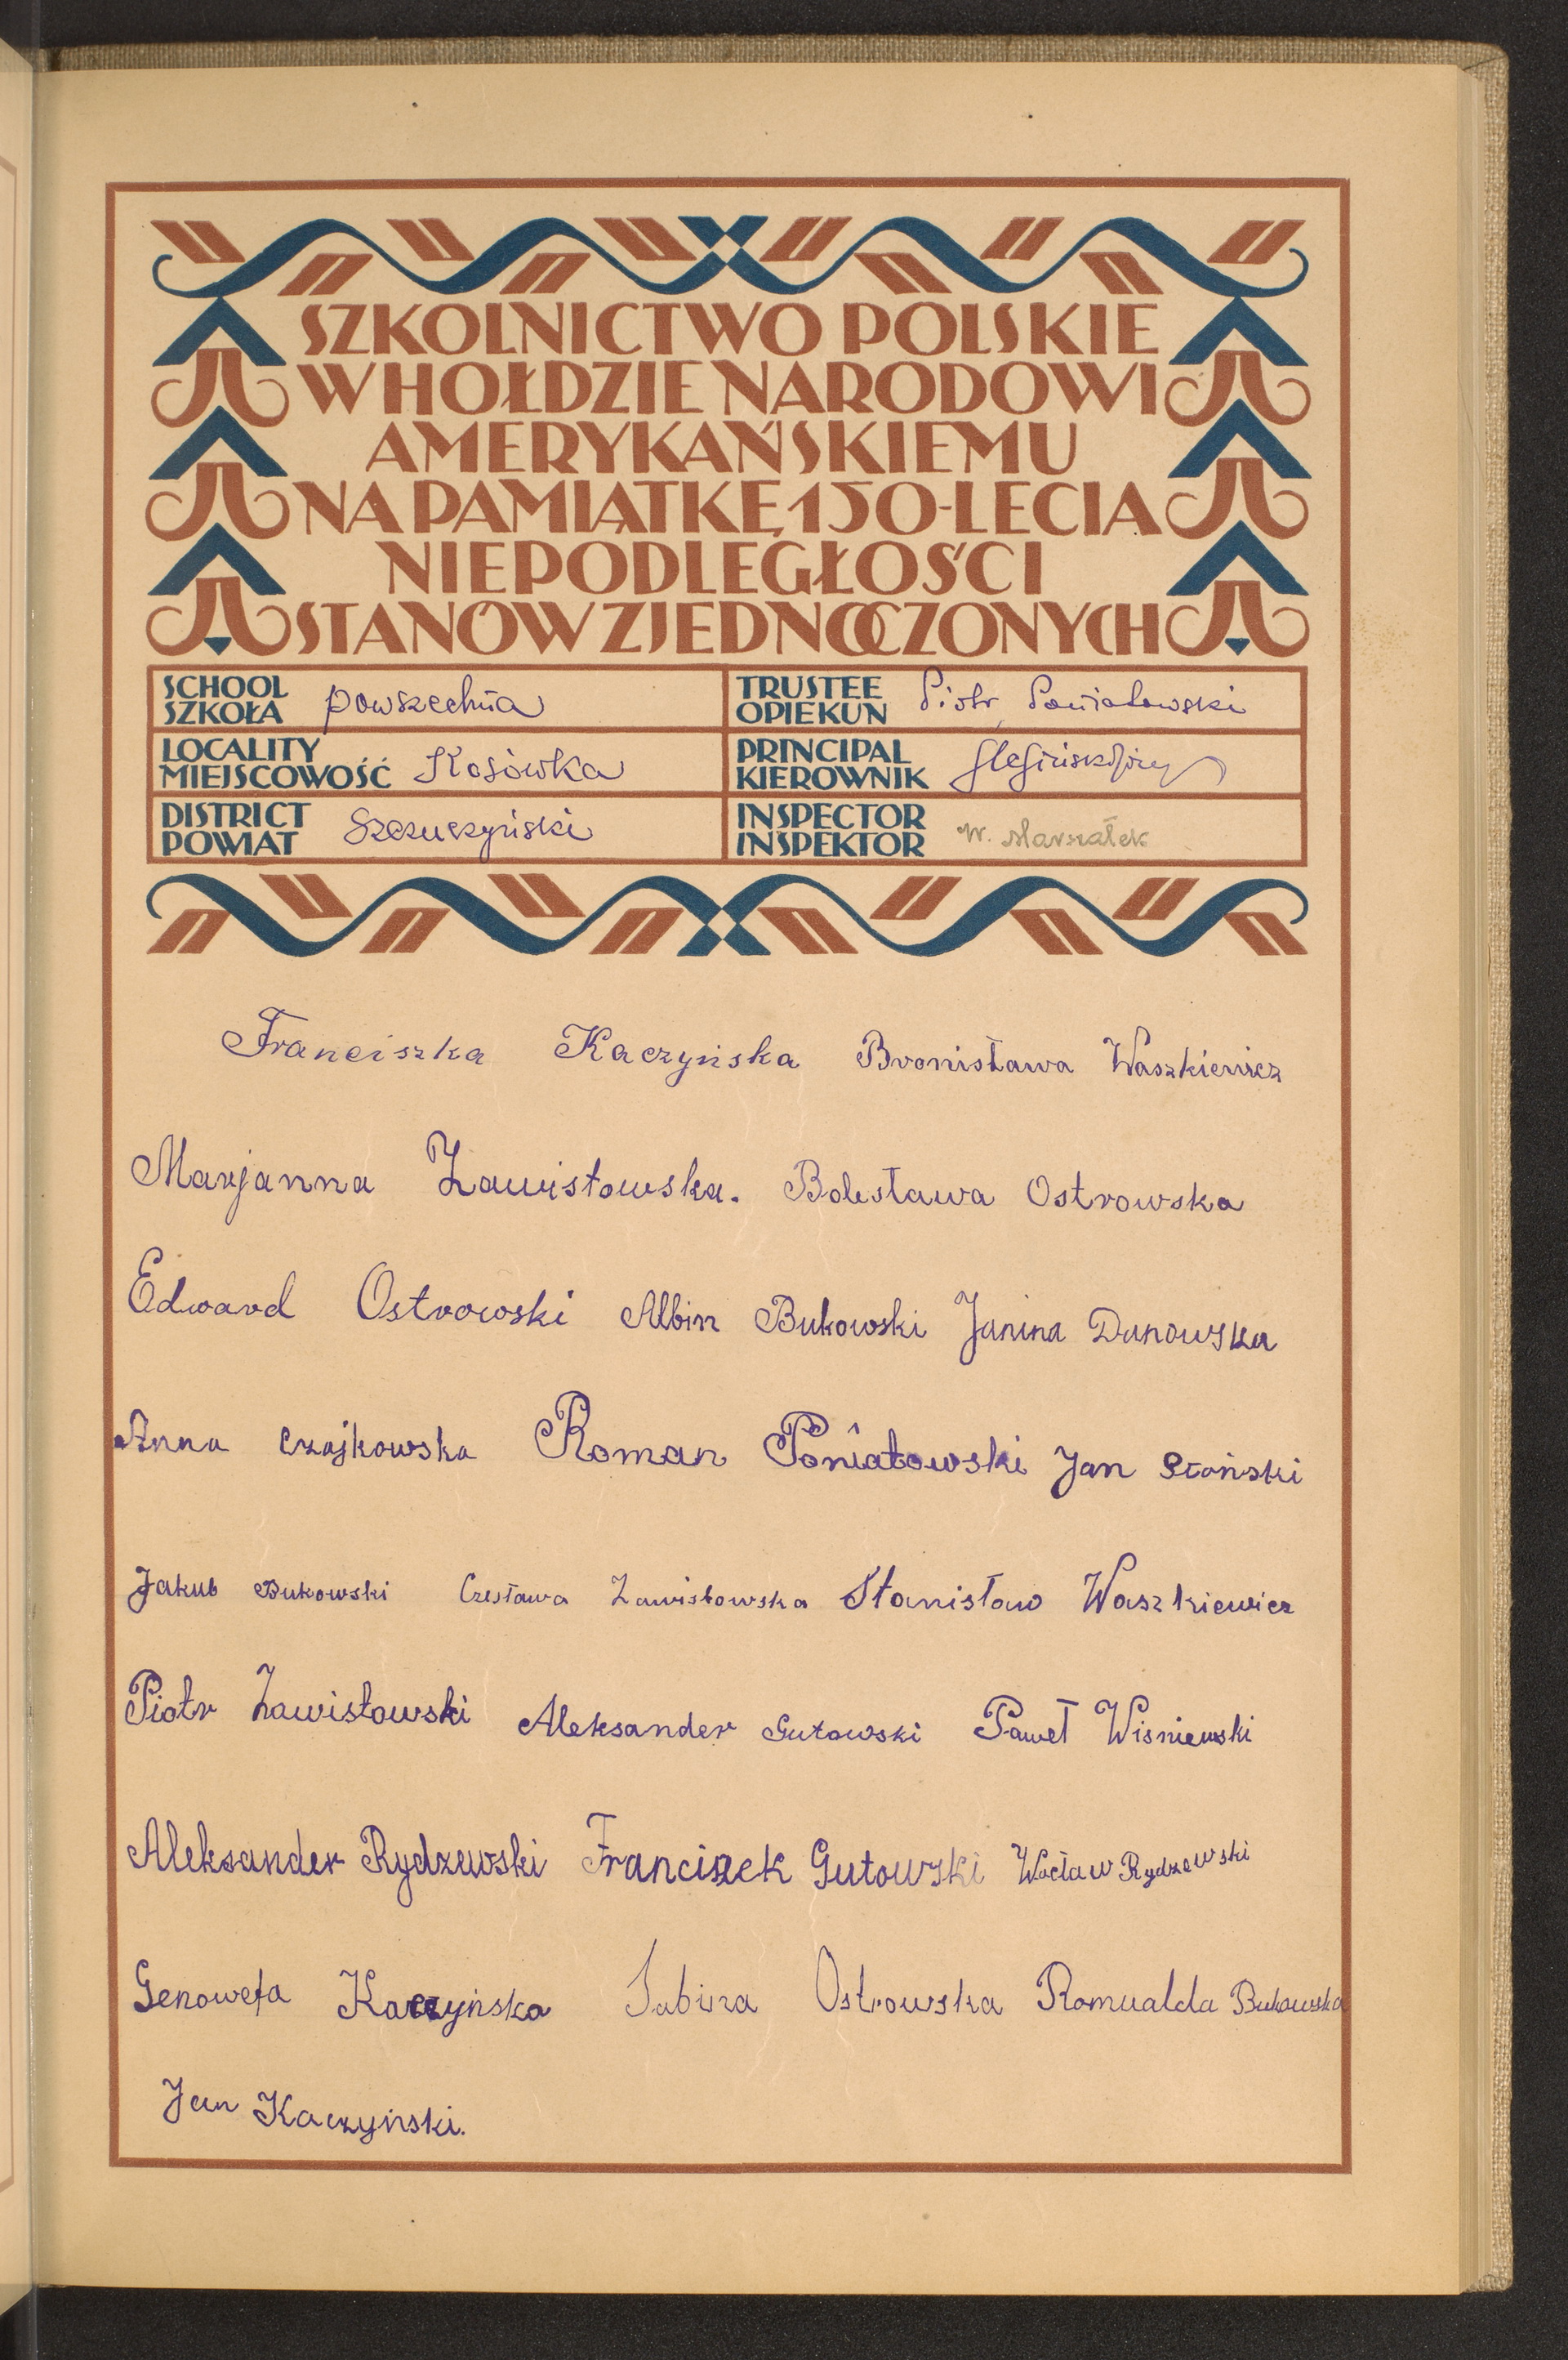 SZKOLNICTWO POLSKIE
W HOŁDZIE NARODOWI
AMERYKAŃSKIEMU
NA PAMIĄTKĘ 150-LECIA
NIEPODLEGŁOŚCI
STANÓW ZJEDNOCZONYCH
SCHOOL
SZKOŁA powszechna
TRUSTEE
OPIEKUN Piotr Poniatowski
LOCALITY
MIEJSCOWOŚĆ Kosówka
PRINCIPAL
KIEROWNIK
DISTRICT
POWIAT Szczuczyński
INSPECTOR
INSPEKTOR W. Marszałek
Franciszka Kaczyńska Bronisława Waszkiewicz
Marjanna Zawistowska. Bolesława Ostrowska
Edward Ostrowski Albin Bukowski Janina Danowska
Anna Czajkowska Roman Poniatowski Jan Słoński
Jakub Bukowski Czesława Zawistowska Stanisław Waszkiewicz
Piotr Zawistowski Aleksander Gutowski Paweł Wisniewski
Aleksander Rydzewski Franciszek Gutowski Wacław Rydzewski
Genowefa Kaczyńska Sabina Ostrowska Romualda Bukowska
Jan Kaczyński.